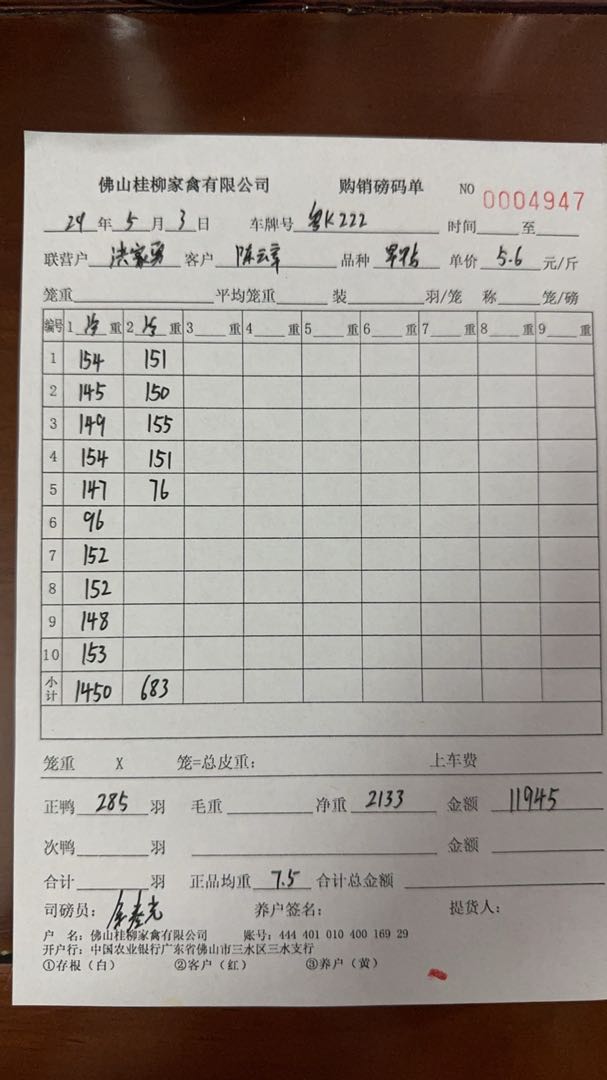 佛山桂柳家禽有限公司 购销磅码单 NO 0004947
24 年 5 月 3 日 车牌号 粤K222 时间 至
联营户 洪家勇 客户 陈云章 品种 单价 5.6 元/斤
笼重 平均笼重 装 羽/笼 称 笼/磅
编号 1 净 重 2 净 重 3 重 4 重 5 重 6 重 7 重 8 重 9 重
1 154 151
2 145 150
3 149 155
4 154 151
5 147 76
6 96
7 152
8 152
9 148
10 153
小计 1450 683
笼重 X 笼=总皮重： 上车费
正鸭 285 羽 毛重 净重 2133 金额 11945
次鸭 羽 金额
合计 羽 正品均重 7.5 合计总金额
司磅员： 养户签名： 提货人：
户 名：佛山桂柳家禽有限公司 账号：444 401 010 400 169 29
开户行：中国农业银行广东省佛山市三水区三水支行
①存根（白） ②客户（红） ③养户（黄）